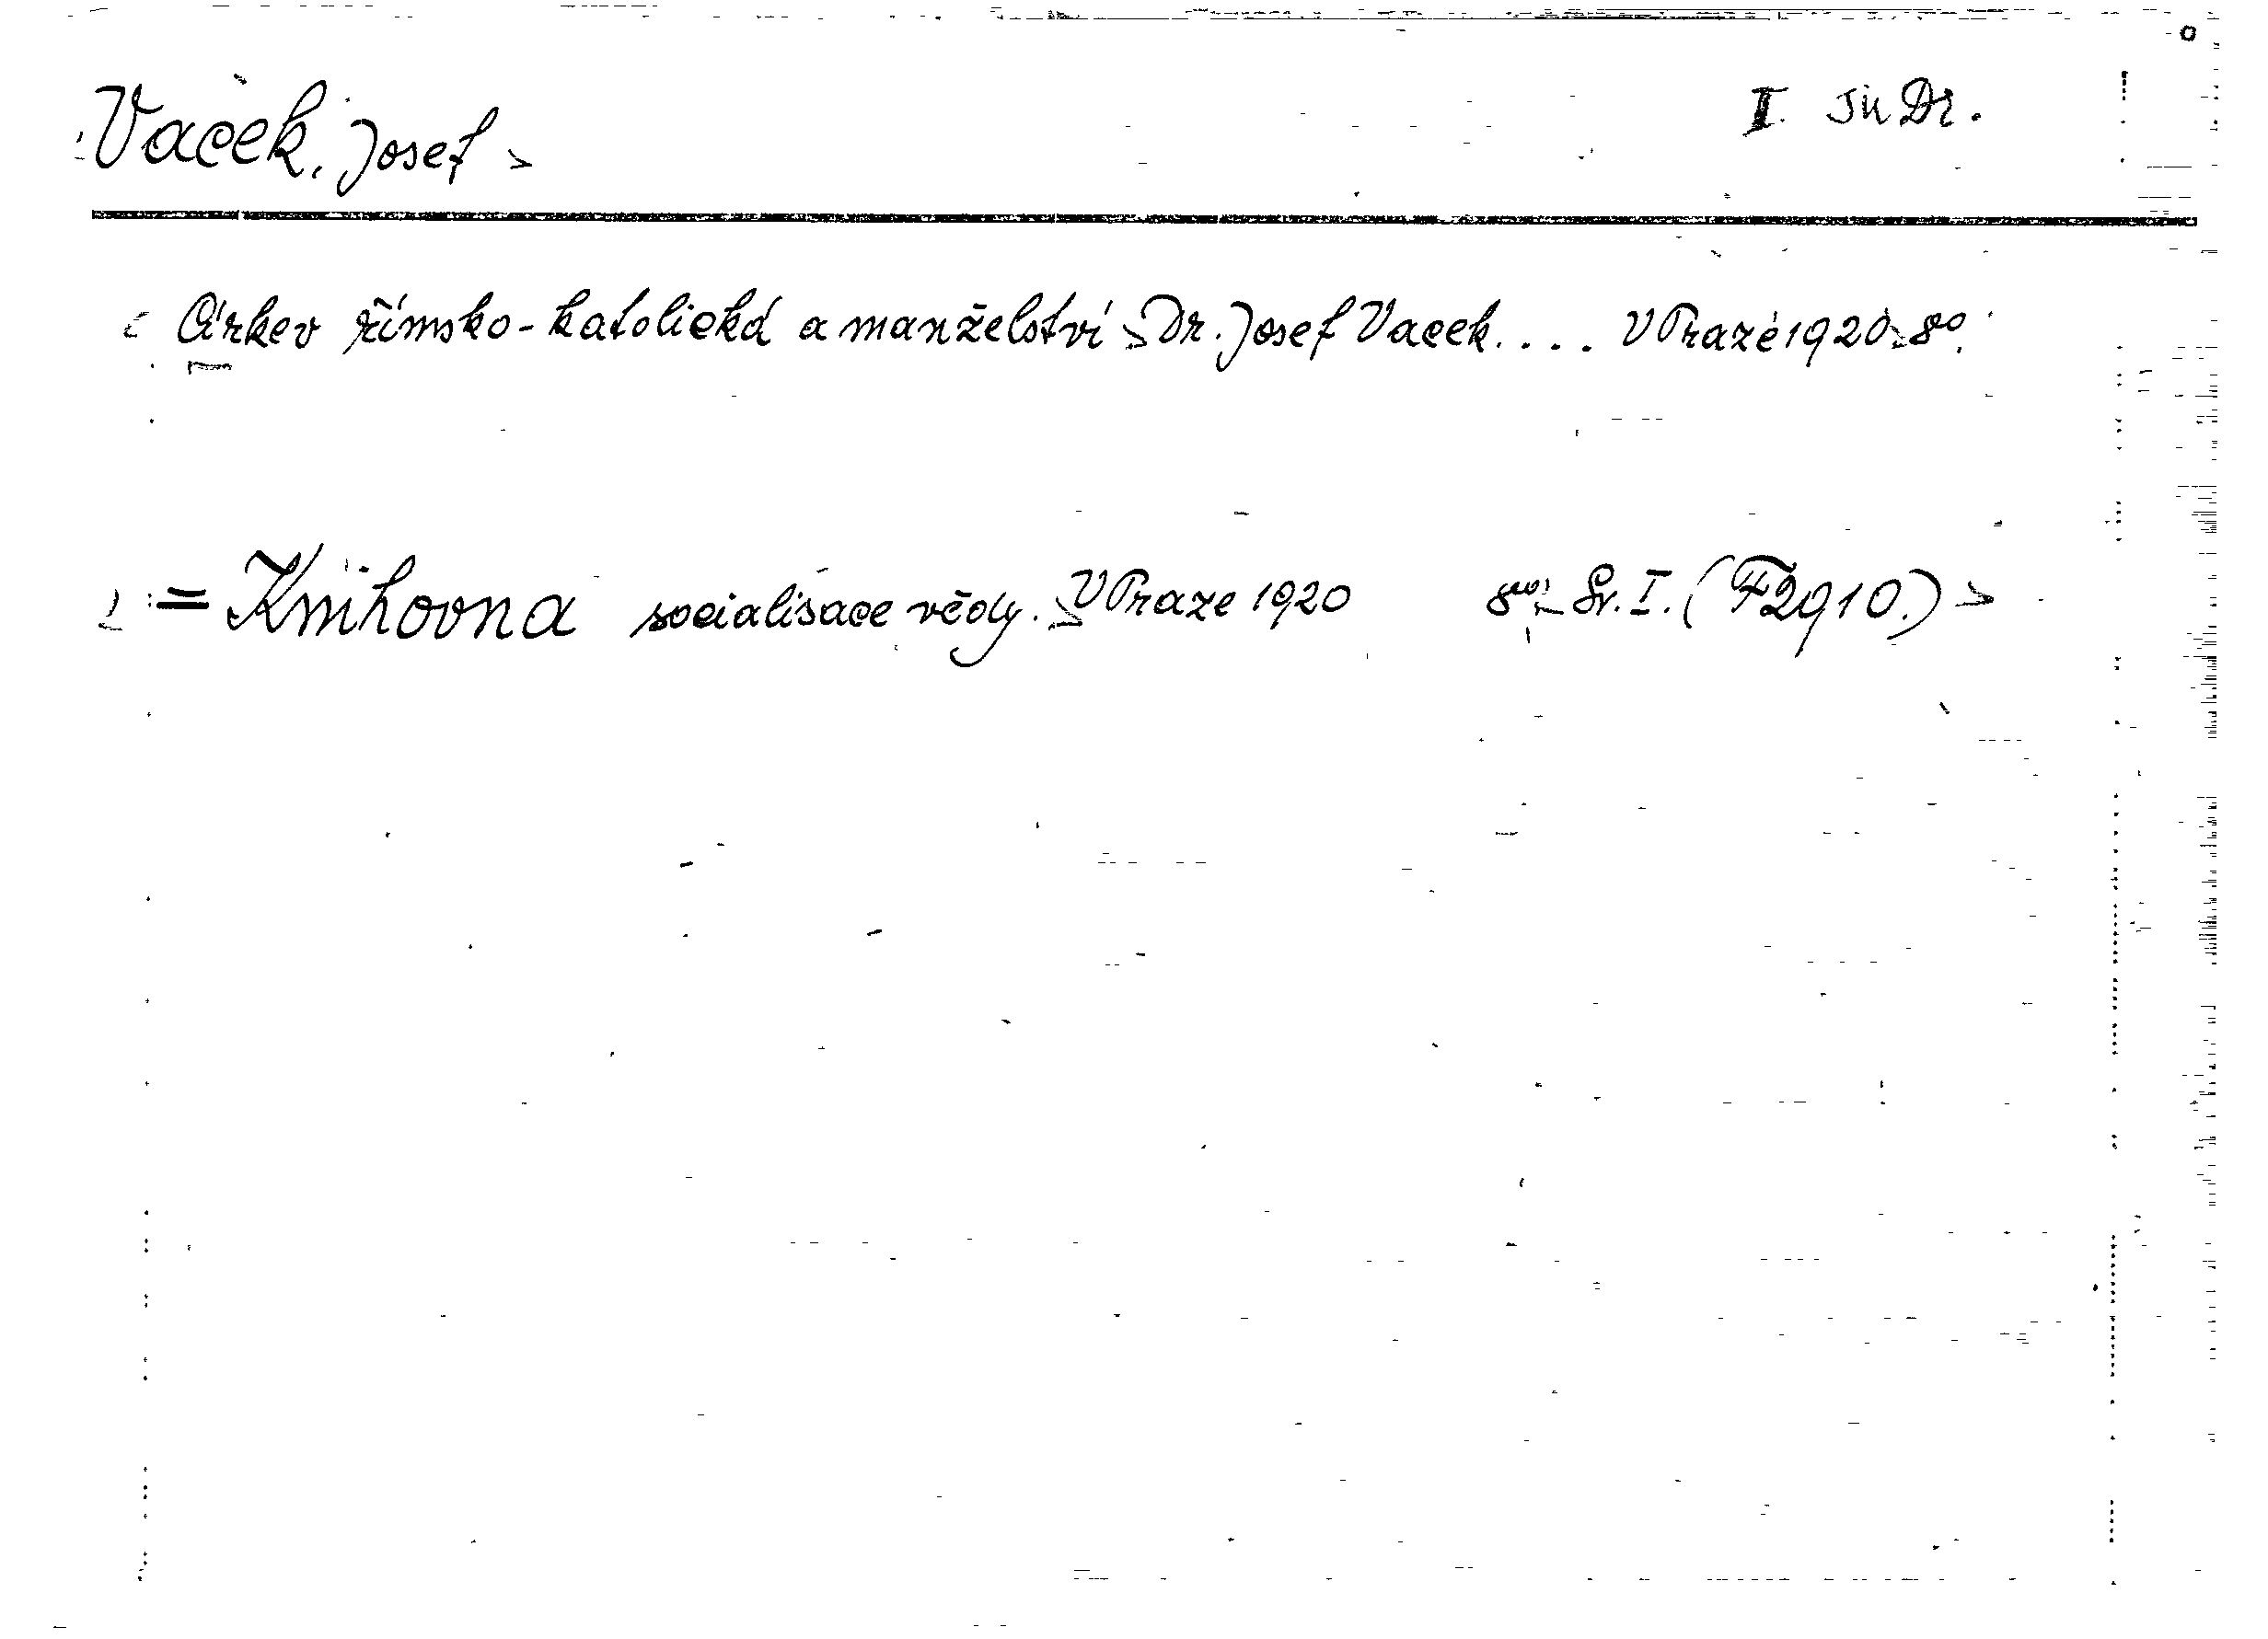 Vacek, Josef > I. JuDr.
Církev římsko-katolická a manželství > Dr. Josef Vacek.... V Praze 1920 > 8°.
= Knihovna socialisace vědy. > V Praze 1920 8°. Sv. I. (F2910.) >